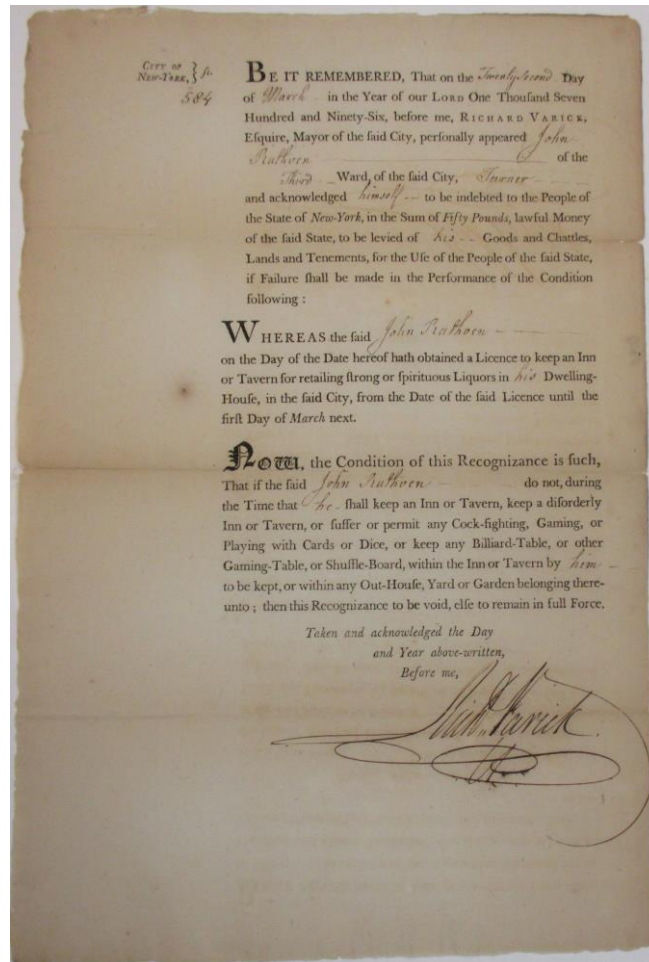 CITY OF
NEW-YORK, } ſs.
584
BE IT REMEMBERED, That on the Twenty second Day
of March in the Year of our LORD One Thouſand Seven
Hundred and Ninety-Six, before me, RICHARD VARICK,
Eſquire, Mayor of the ſaid City, perſonally appeared John
Ruthven of the
Third Ward, of the ſaid City,
and acknowledged himself to be indebted to the People of
the State of New-York, in the Sum of Fifty Pounds, lawful Money
of the ſaid State, to be levied of his Goods and Chattles,
Lands and Tenements, for the Uſe of the People of the ſaid State,
if Failure ſhall be made in the Performance of the Condition
following :
WHEREAS the ſaid John Ruthven
on the Day of the Date hereof hath obtained a Licence to keep an Inn
or Tavern for retailing ſtrong or ſpirituous Liquors in his Dwelling-
Houſe, in the ſaid City, from the Date of the ſaid Licence until the
firſt Day of March next.
NOW, the Condition of this Recognizance is ſuch,
That if the ſaid John Ruthven do not, during
the Time that he ſhall keep an Inn or Tavern, keep a diſorderly
Inn or Tavern, or ſuffer or permit any Cock-fighting, Gaming, or
Playing with Cards or Dice, or keep any Billiard-Table, or other
Gaming-Table, or Shuffle-Board, within the Inn or Tavern by him
to be kept, or within any Out-Houſe, Yard or Garden belonging there-
unto ; then this Recognizance to be void, elſe to remain in full Force.
Taken and acknowledged the Day
and Year above-written,
Before me,
Richd Varick